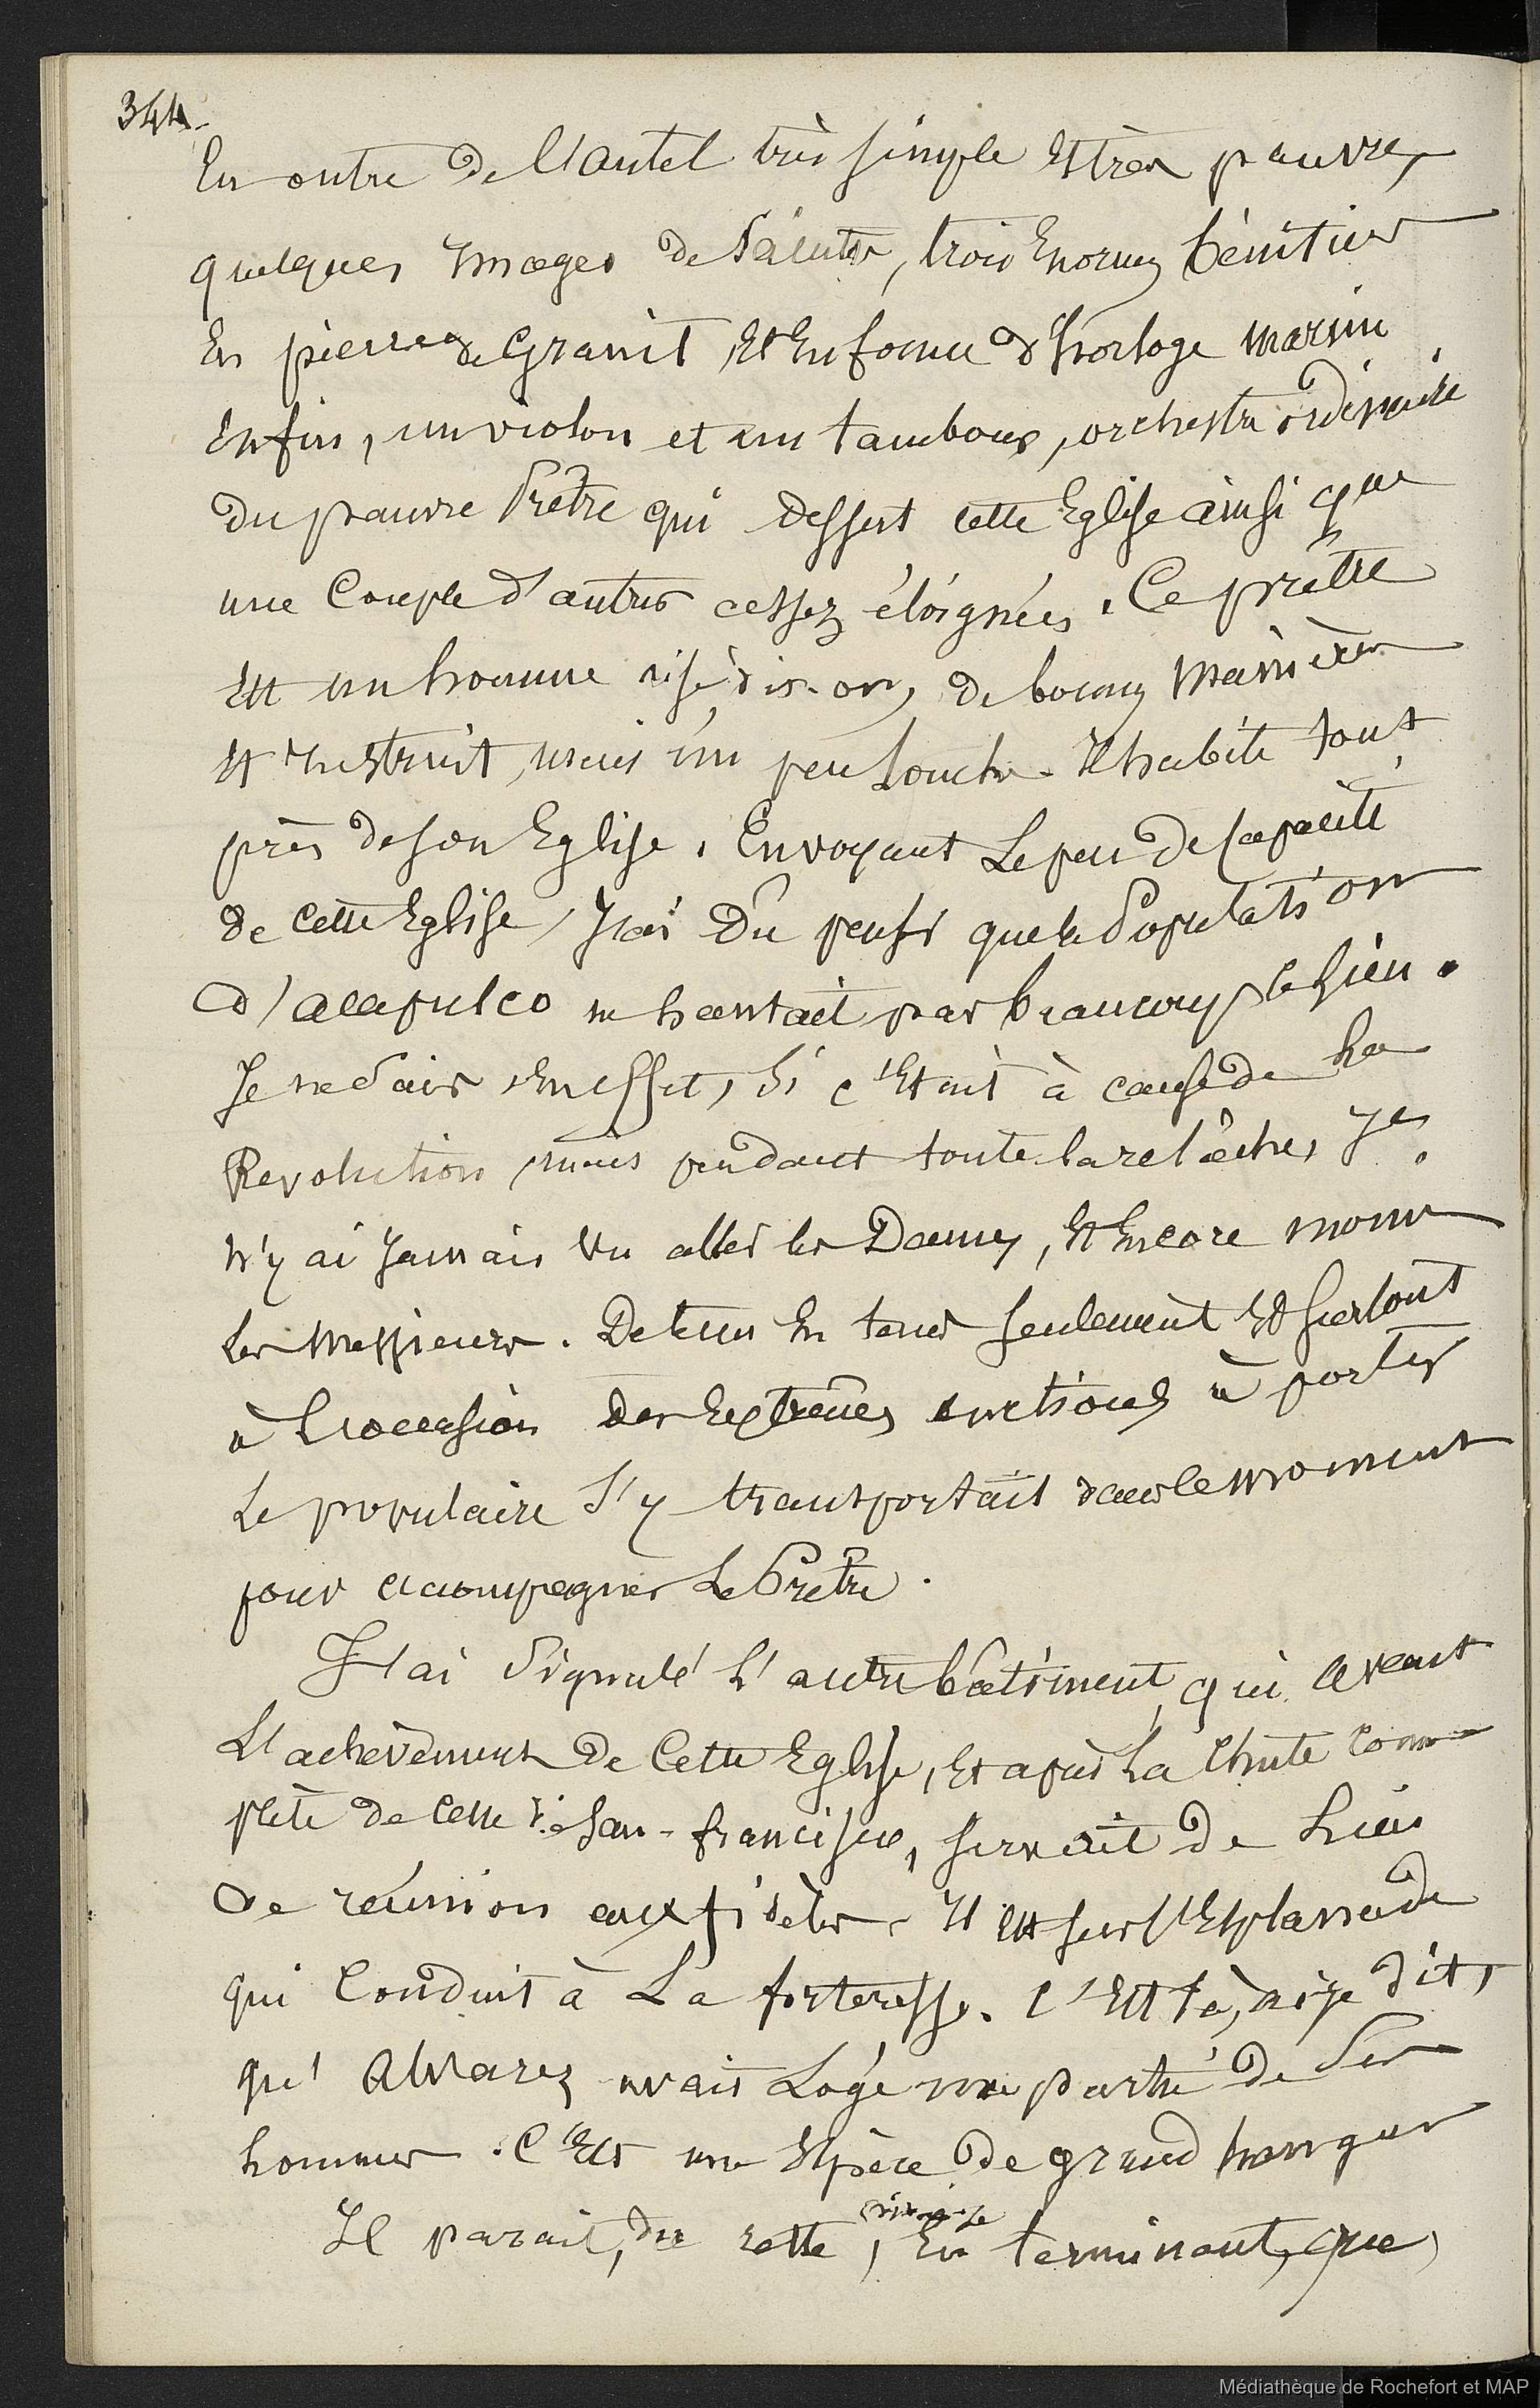 344.
En outre de l'autel très simple et très pauvre,
quelques images de Saintes, trois énormes bénitiers
en pierre de granit, et en forme d'horloge marine
enfin, un violon et un tambour, orchestre ordinaire
du pauvre Prêtre qui dessert cette Eglise ainsi que
une couple d'autres assez éloignées. Ce prêtre
est un homme dis-on, de bonnes manières
et instruit, mais un peu louche. Il habite tout
près de son Eglise. En voyant le peu de capacité
de cette Eglise, j'ai dû penser que la Population
d'acapulco ne hantait pas beaucoup le lieu.
Je ne sais en effet, si c'était à cause de la
Revolution, mais pendant toute la relâche, je
n'y ai jamais vu aller les Dames, et encore moins
les messieurs. De tems en tems seulement et surtout
à l'occasion des Extrêmes onctions à porter
le populaire s'y transportait dans le moment
pour accompagner le Prêtre.
J'ai signalé l'autre bâtiment, qui avant
l'achèvement de cette Eglise, et après la chute com-
plète de celle de San-francisco, servait de lieu
de réunion aux fidèles. Il est sur l'Esplanade
qui conduit à la forteresse. C'est là, ai-je dit,
qu'Alvarez avait logé une partie de ses
hommes. C'est une espèce de grand hangar
Il parait, du reste, en terminant, que